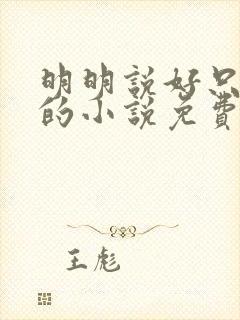 明明說好只
的小說免費
王彪